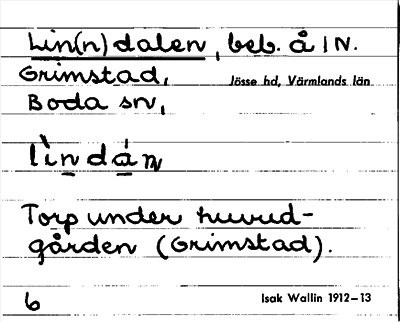 Lin(n)dalen, beb. å IN.
Grimstad, Jösse hd, Värmlands län
Boda sn,
lìndán
Torp under huvud-
gården (Grimstad).
6 Isak Wallin 1912–13